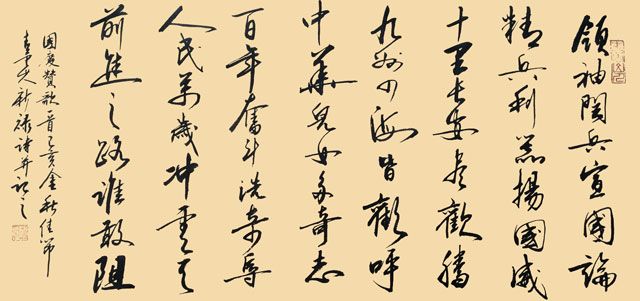 領袖閱兵宣國論
精兵利器揚國威
十里長安尽歡騰
九州四海皆歡呼
中華兒女多奇志
百年奮斗洗奇辱
人民萬歲冲雲天
前進之路誰敢阻
國慶贊歌一首己亥金秋佳节
新禄詩并記之